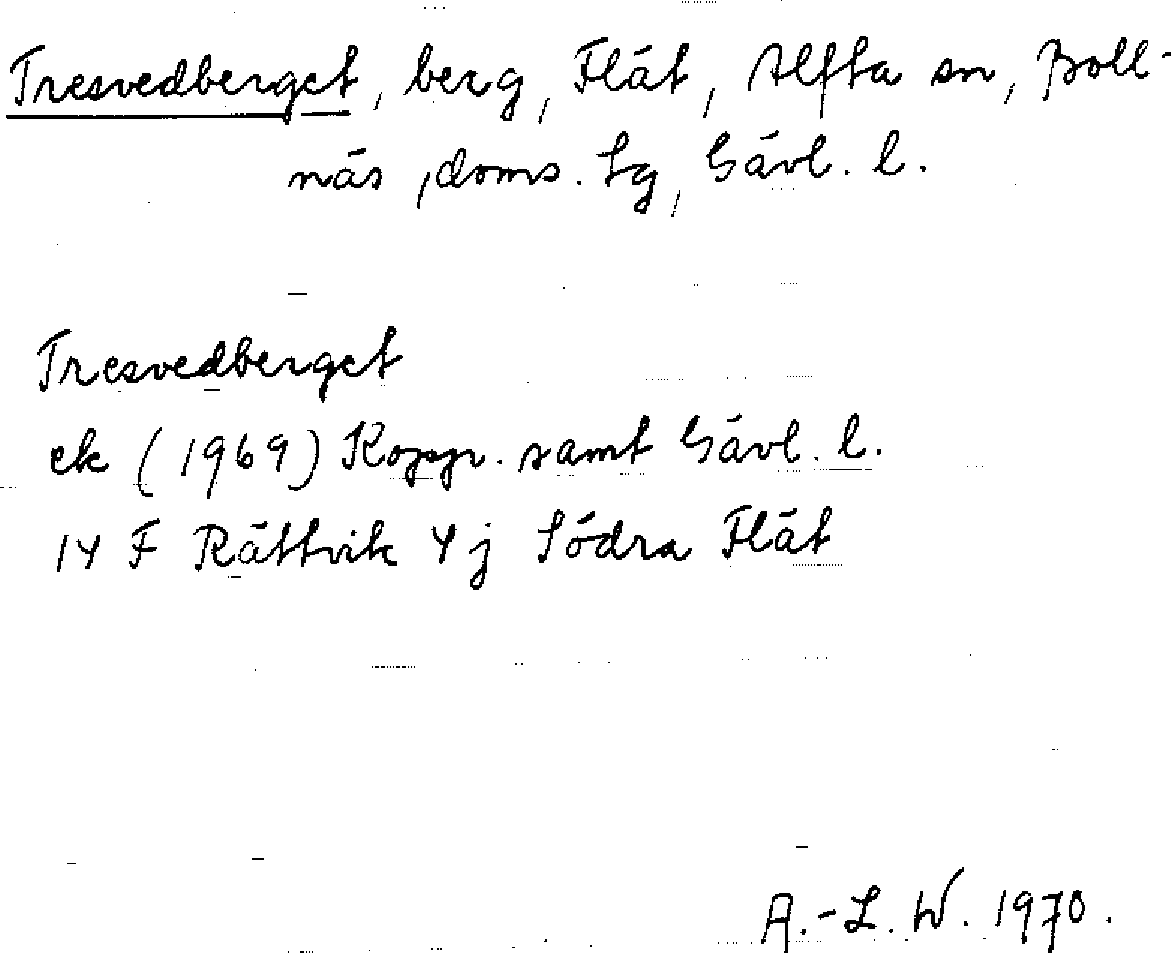 Tresvedberget, berg, Flät, Alfta sn, Boll-
näs, doms. Lg, Gävl. l.
Tresvedberget
ek (1969) Koppr. samt Gävl. l.
14 F Rättvik 4j Södra Flät
A.-L. W. 1970.